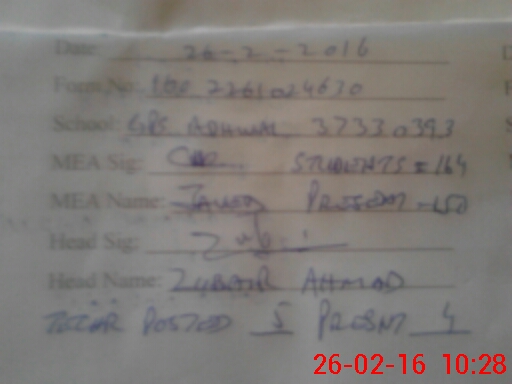 Date: 26-2-2016
Form No: 2261024630
School: GPS 37330393
MEA Sig: STUDENTS = 164
MEA Name: PRESENT - 150
Head Sig:
Head Name: ZUBAIR AHMAD
POSTED 5 PRESNT 4
26-02-16 10:28